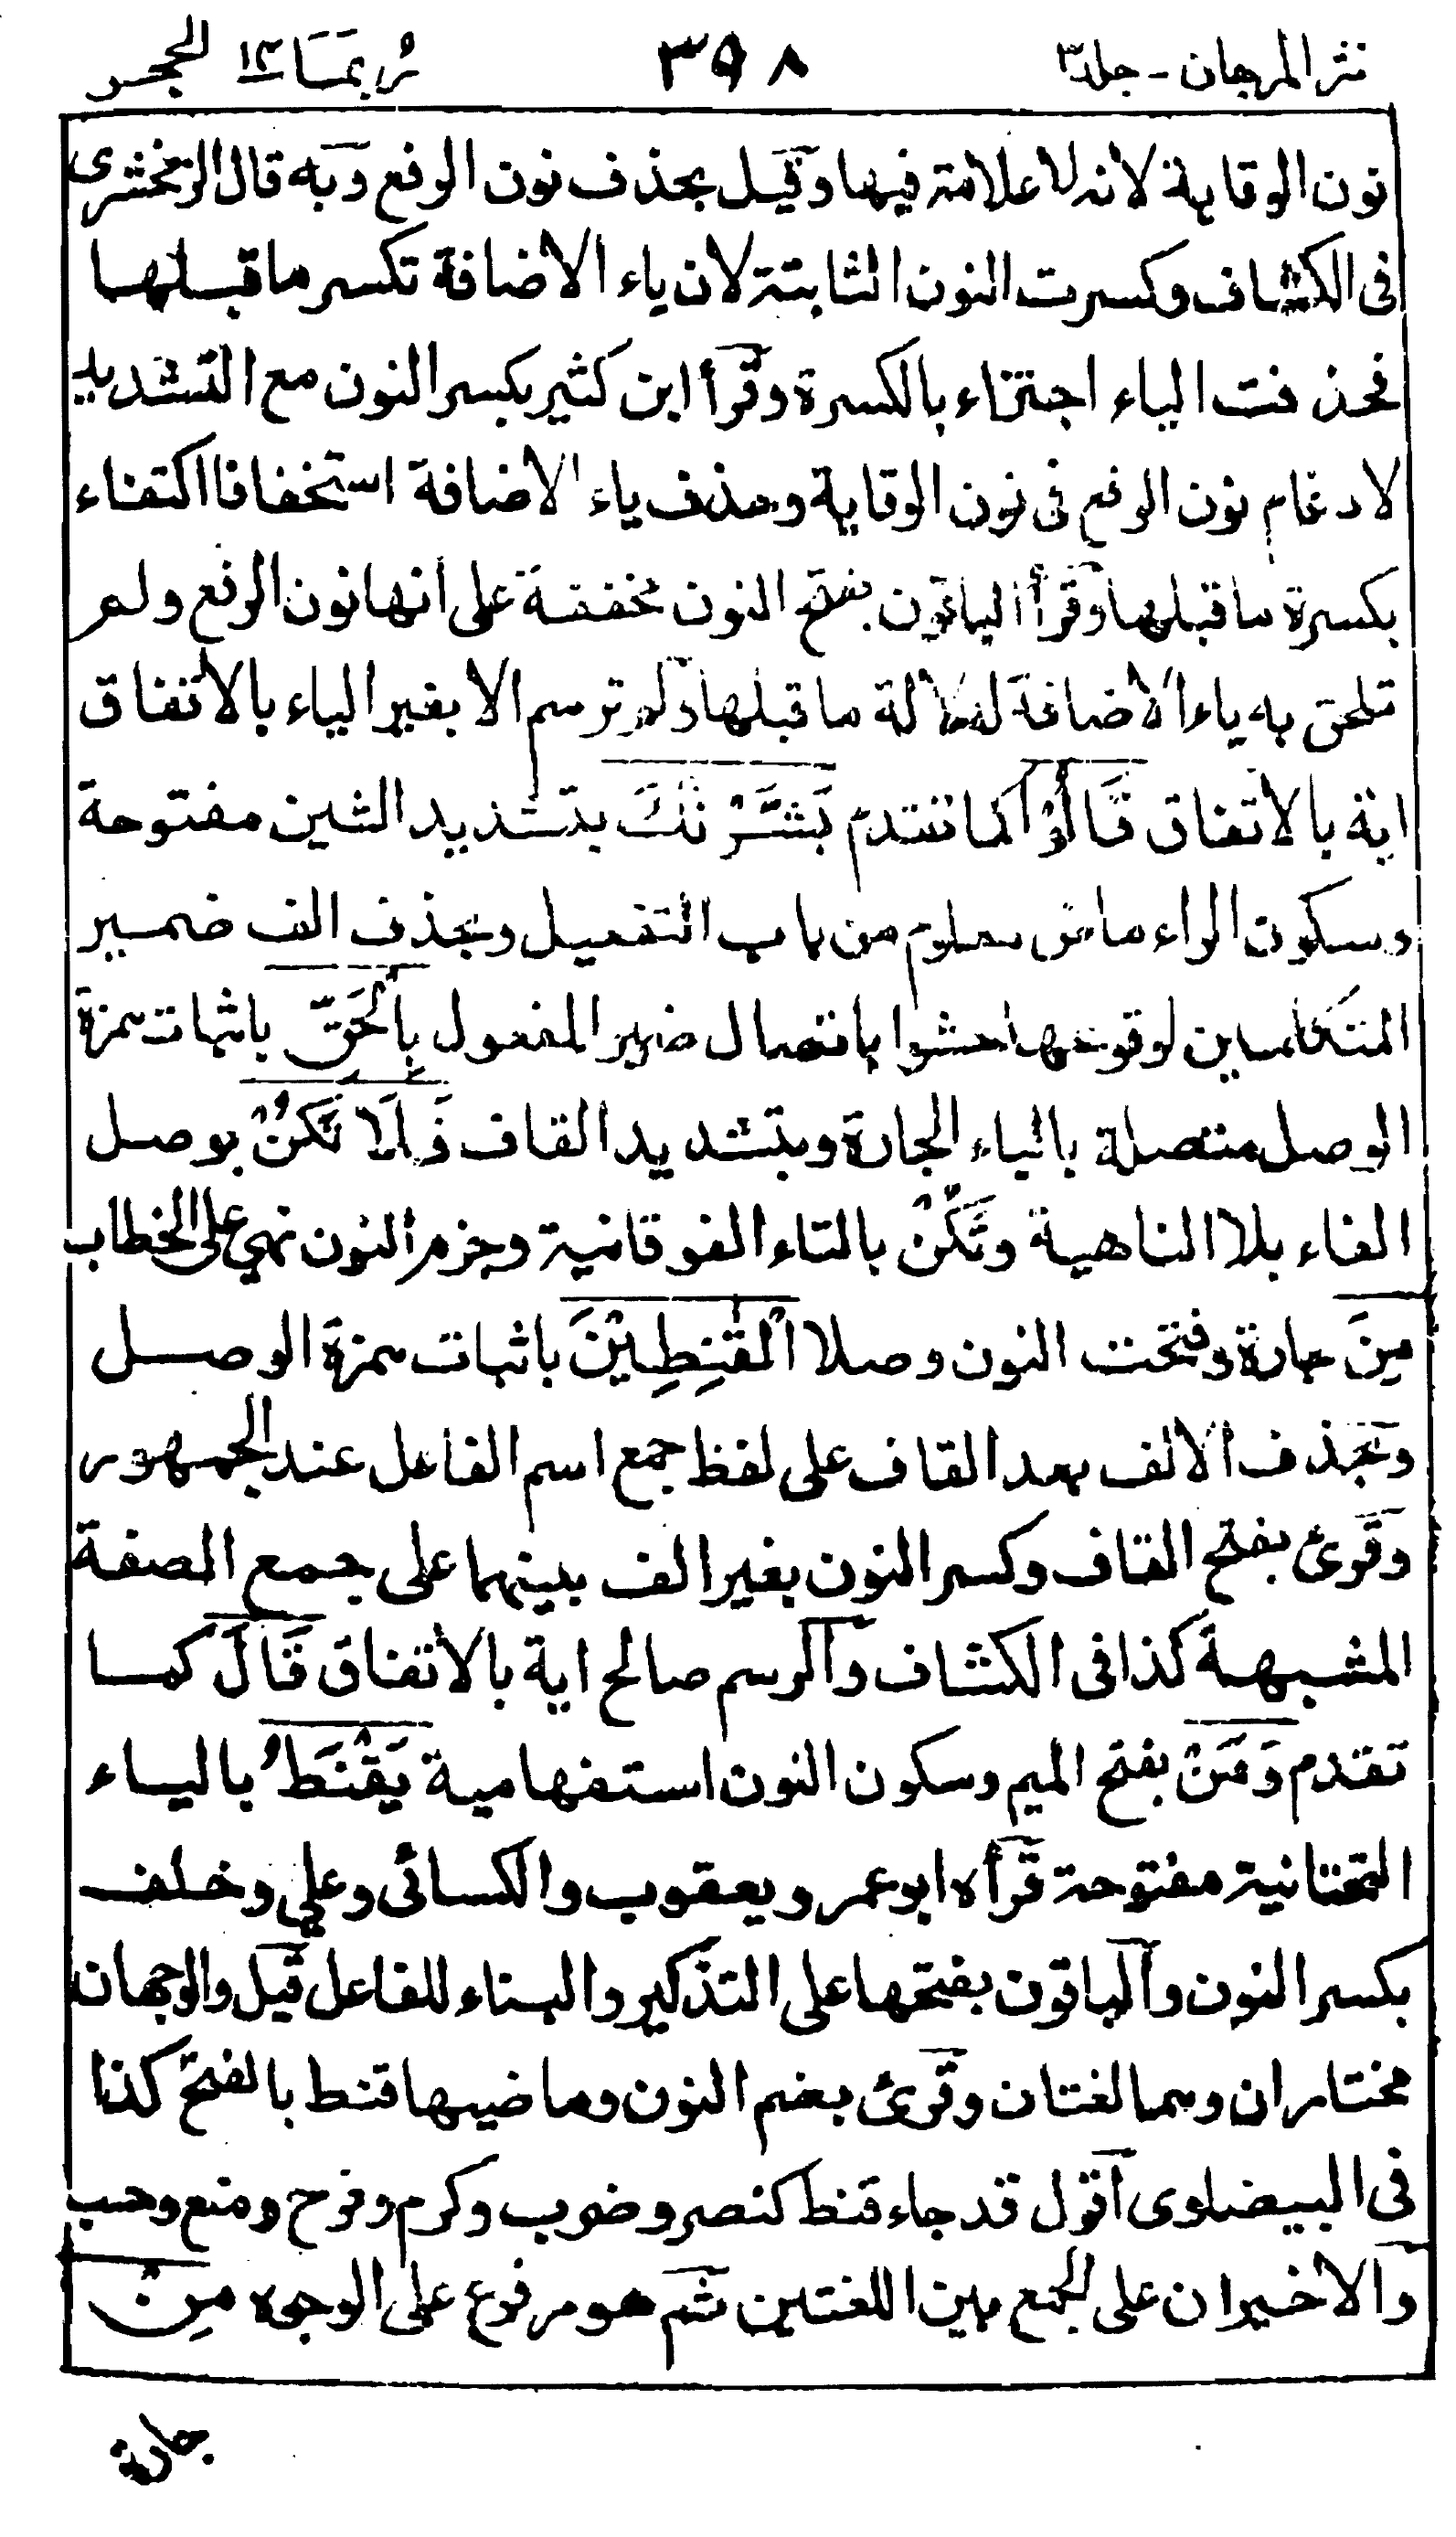 نثر المرجان - جلد ٣ ٣٩٨ رُبَمَا ١٤ الحجر
نون الوقاية لانه لا علامة فيها وقيل بحذف نون الرفع وبه قال الزمخشرى
فى الكشاف وكسرت النون الثابتة لان ياء الاضافة تكسر ما قبلها
فحذفت الياء اجتزاء بالكسرة وقرأ ابن كثير بكسر النون مع التشديد
لادغام نون الرفع فى نون الوقاية وحذف ياء الاضافة استخفافا اكتفاء
بكسرة ما قبلها وقرأ الباقون بفتح النون مخففة على انها نون الرفع ولم
تلحق به ياء الاضافة لدلالة ما قبلها ولم ترسم الا بغير الياء بالاتفاق
اية بالاتفاق قَالُوْا كما تقدم بَشَّرْنٰكَ بتشديد الشين مفتوحة
وسكون الراء ماض معلوم من باب التفعيل وبحذف الف ضمير
المتكلمين لوقوعها حشوا باتصال ضمير المفعول بِالْحَقِّ باثبات همزة
الوصل متصلة بالباء الجارة وبتشديد القاف فَلَا تَكُنْ بوصل
الفاء بلا الناهية وتَكُنْ بالتاء الفوقانية وجزم النون نهي على الخطاب
مِنَ جارة وفتحت النون وصلا الْقٰنِطِيْنَ باثبات همزة الوصل
وبحذف الالف بعد القاف على لفظ جمع اسم الفاعل عند الجمهور
وقرئ بفتح القاف وكسر النون بغير الف بينهما على جمع الصفة
المشبهة كذا فى الكشاف والرسم صالح اية بالاتفاق قَالَ كما
تقدم وَمَنْ بفتح الميم وسكون النون استفهامية يَقْنَطُ بالياء
التحتانية مفتوحة قرأه ابو عمر ويعقوب والكسائى وعلي وخلف
بكسر النون والباقون بفتحها على التذكير والبناء للفاعل قيل والوجهان
مختاران وهما لغتان وقرئ بضم النون وماضيها قنط بالفتح كذا
فى البيضاوى اقول قد جاء قنط كنصر وضرب وكرم وفرح ومنع وحسب
والاخيران على الجمع بين اللغتين ثم هو مرفوع على الوجوه مِنْ
جارة